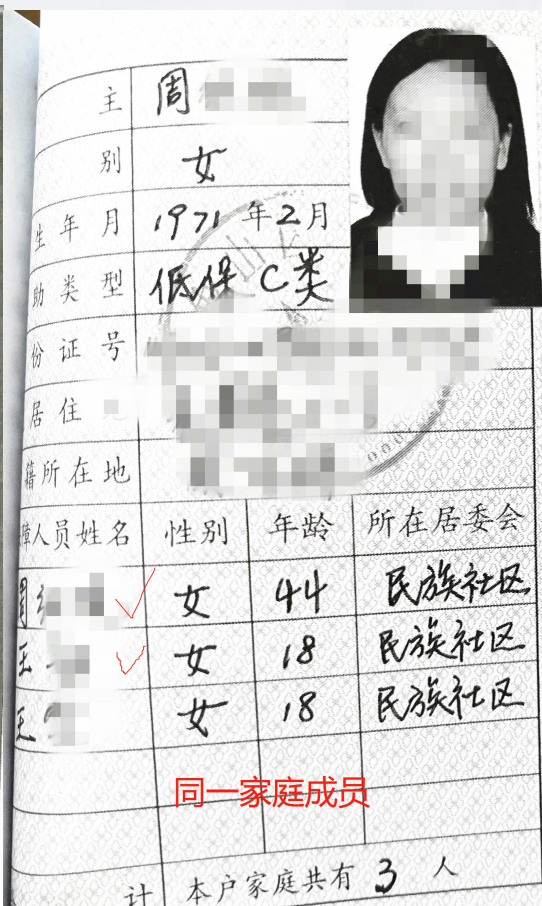 主 周
别 女
生年月 1971年2月
助类型 低保C类
份证号
居住
籍所在地
障人员姓名 性别 年龄 所在居委会
周 女 44 民族社区
王 女 18 民族社区
王 女 18 民族社区
同一家庭成员
计 本户家庭共有 3 人